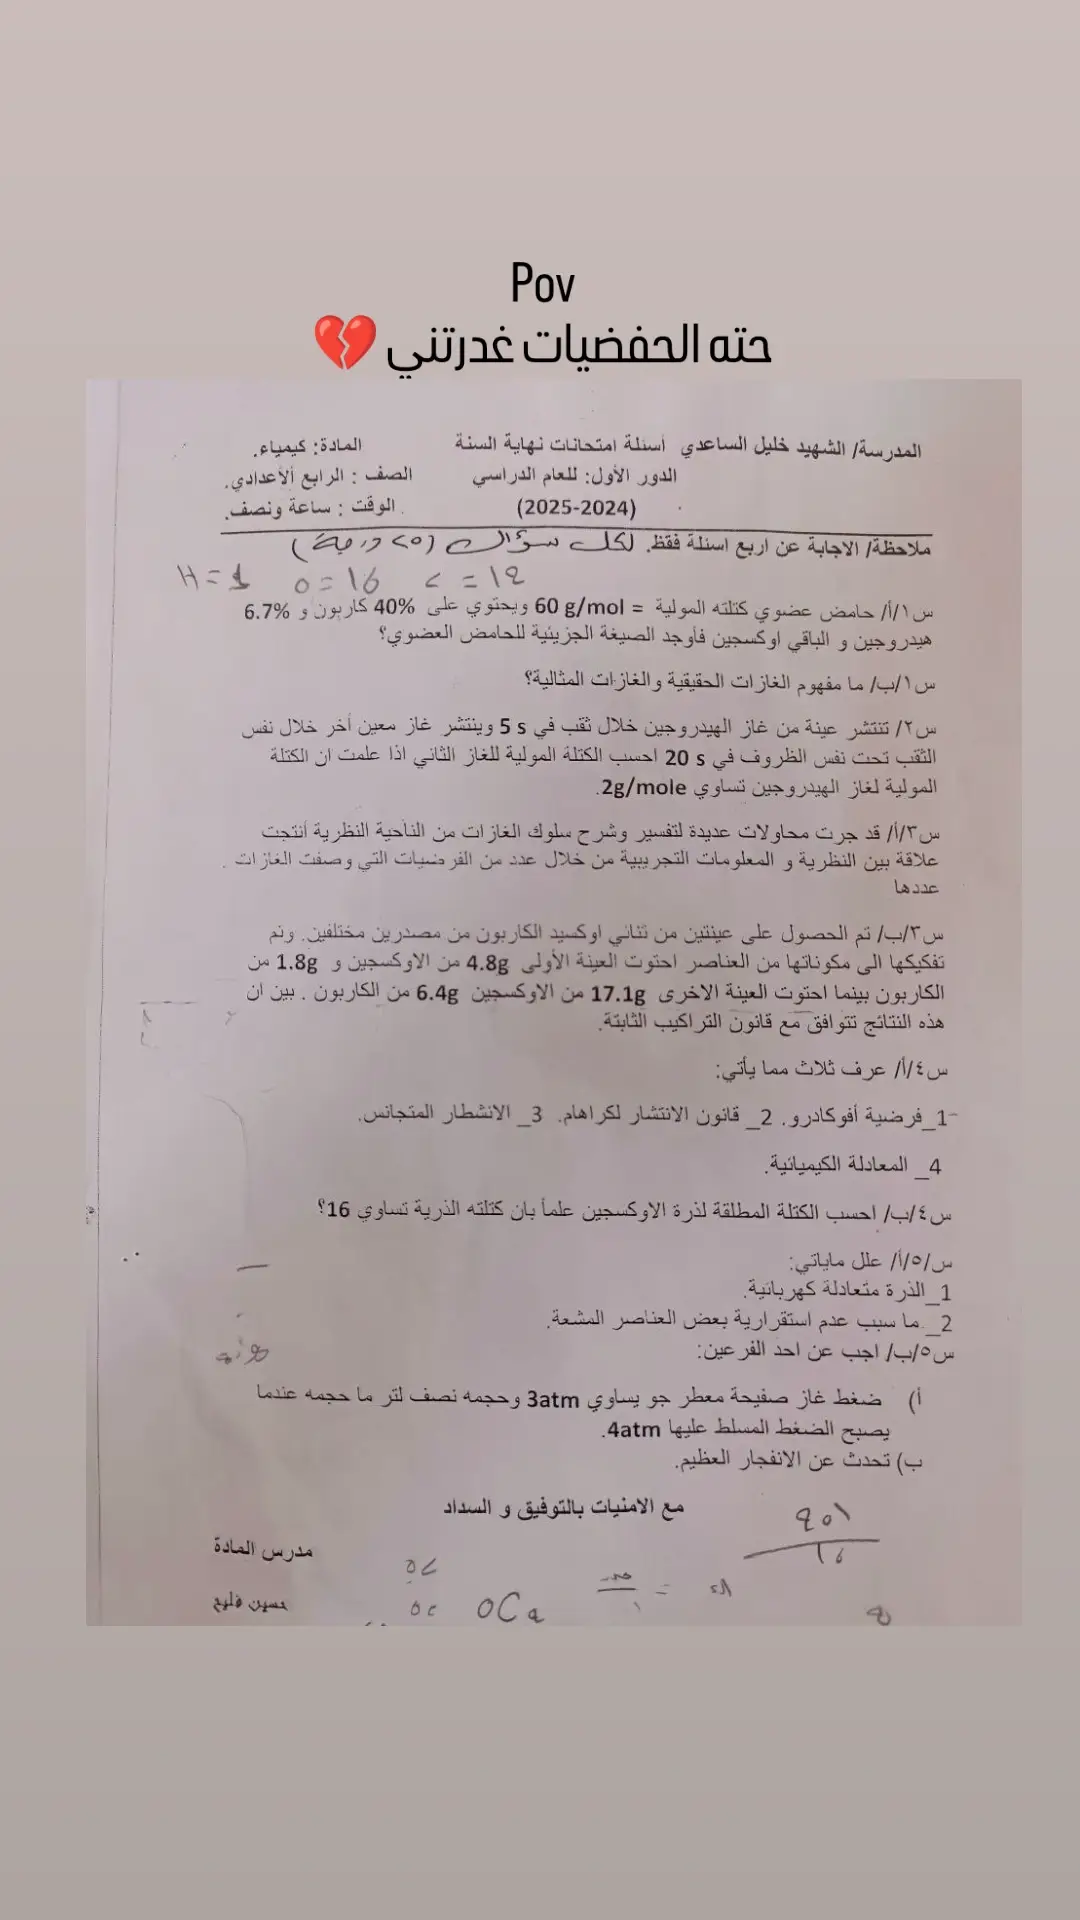 Pov
حته الحفضيات غدرتني 💔
المدرسة/ الشهيد خليل الساعدي أسئلة امتحانات نهاية السنة المادة: كيمياء.
الدور الأول: للعام الدراسي الصف : الرابع ألأعدادي.
(2025-2024) الوقت : ساعة ونصف.
ملاحظة/ الاجابة عن اربع اسئلة فقط. لكل سؤال (٢٥ درجة)
H=1 O=16 C=12
س١/أ/ حامض عضوي كتلته المولية = 60 g/mol ويحتوي على 40% كاربون و 6.7%
هيدروجين و الباقي اوكسجين فأوجد الصيغة الجزيئية للحامض العضوي؟
س١/ب/ ما مفهوم الغازات الحقيقية والغازات المثالية؟
س٢/ تنتشر عينة من غاز الهيدروجين خلال ثقب في 5 s وينتشر غاز معين أخر خلال نفس
الثقب تحت نفس الظروف في 20 s احسب الكتلة المولية للغاز الثاني اذا علمت ان الكتلة
المولية لغاز الهيدروجين تساوي 2g/mole.
س٣/أ/ قد جرت محاولات عديدة لتفسير وشرح سلوك الغازات من الناحية النظرية أنتجت
علاقة بين النظرية و المعلومات التجريبية من خلال عدد من الفرضيات التي وصفت الغازات .
عددها
س٣/ب/ تم الحصول على عينتين من ثنائي اوكسيد الكاربون من مصدرين مختلفين. وتم
تفكيكها الى مكوناتها من العناصر احتوت العينة الأولى 4.8g من الاوكسجين و 1.8g من
الكاربون بينما احتوت العينة الاخرى 17.1g من الاوكسجين 6.4g من الكاربون . بين ان
هذه النتائج تتوافق مع قانون التراكيب الثابتة.
س٤/أ/ عرف ثلاث مما يأتي:
1_فرضية أفوكادرو. 2_ قانون الانتشار لكراهام. 3_ الانشطار المتجانس.
4_ المعادلة الكيميائية.
س٤/ب/ احسب الكتلة المطلقة لذرة الاوكسجين علماً بان كتلته الذرية تساوي 16؟
س/٥/أ/ علل ماياتي:
1_الذرة متعادلة كهربائية.
2_ ما سبب عدم استقرارية بعض العناصر المشعة.
س٥/ب/ اجب عن احد الفرعين:
أ) ضغط غاز صفيحة معطر جو يساوي 3atm وحجمه نصف لتر ما حجمه عندما
يصبح الضغط المسلط عليها 4atm.
ب) تحدث عن الانفجار العظيم.
مع الامنيات بالتوفيق و السداد
مدرس المادة
حسين فليح
OCa